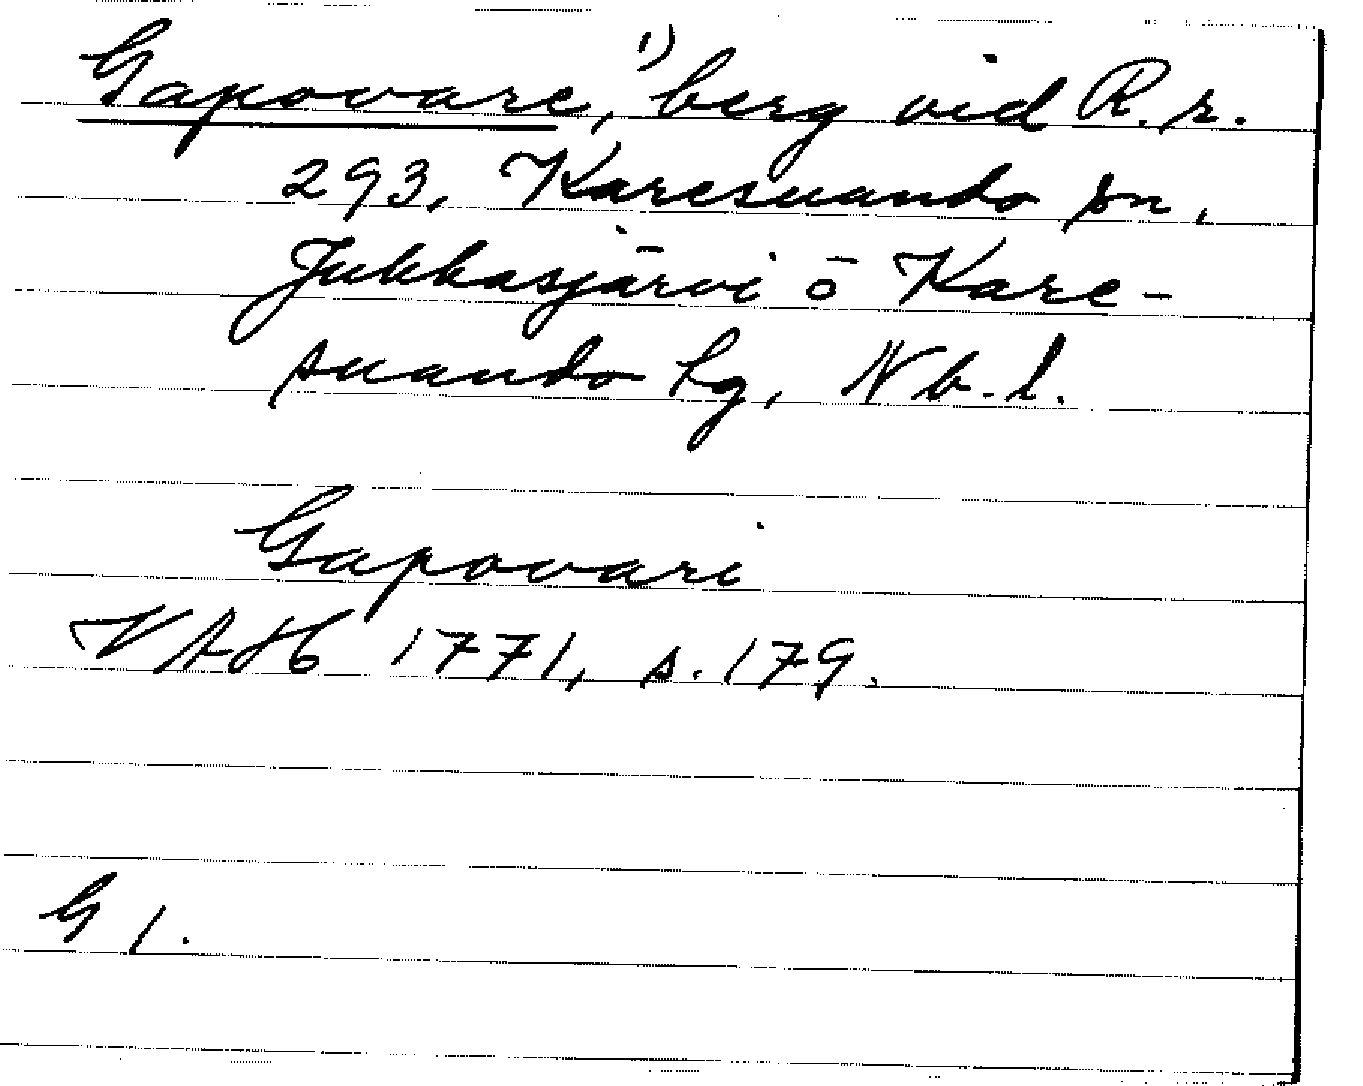 Gapovare,¹⁾ berg vid R.r.
293, Karesuando sn,
Jukkasjärvi o Kare-
suando lg, Nb.l.
Gapovari
VAH 1771, s. 179.
G 1.